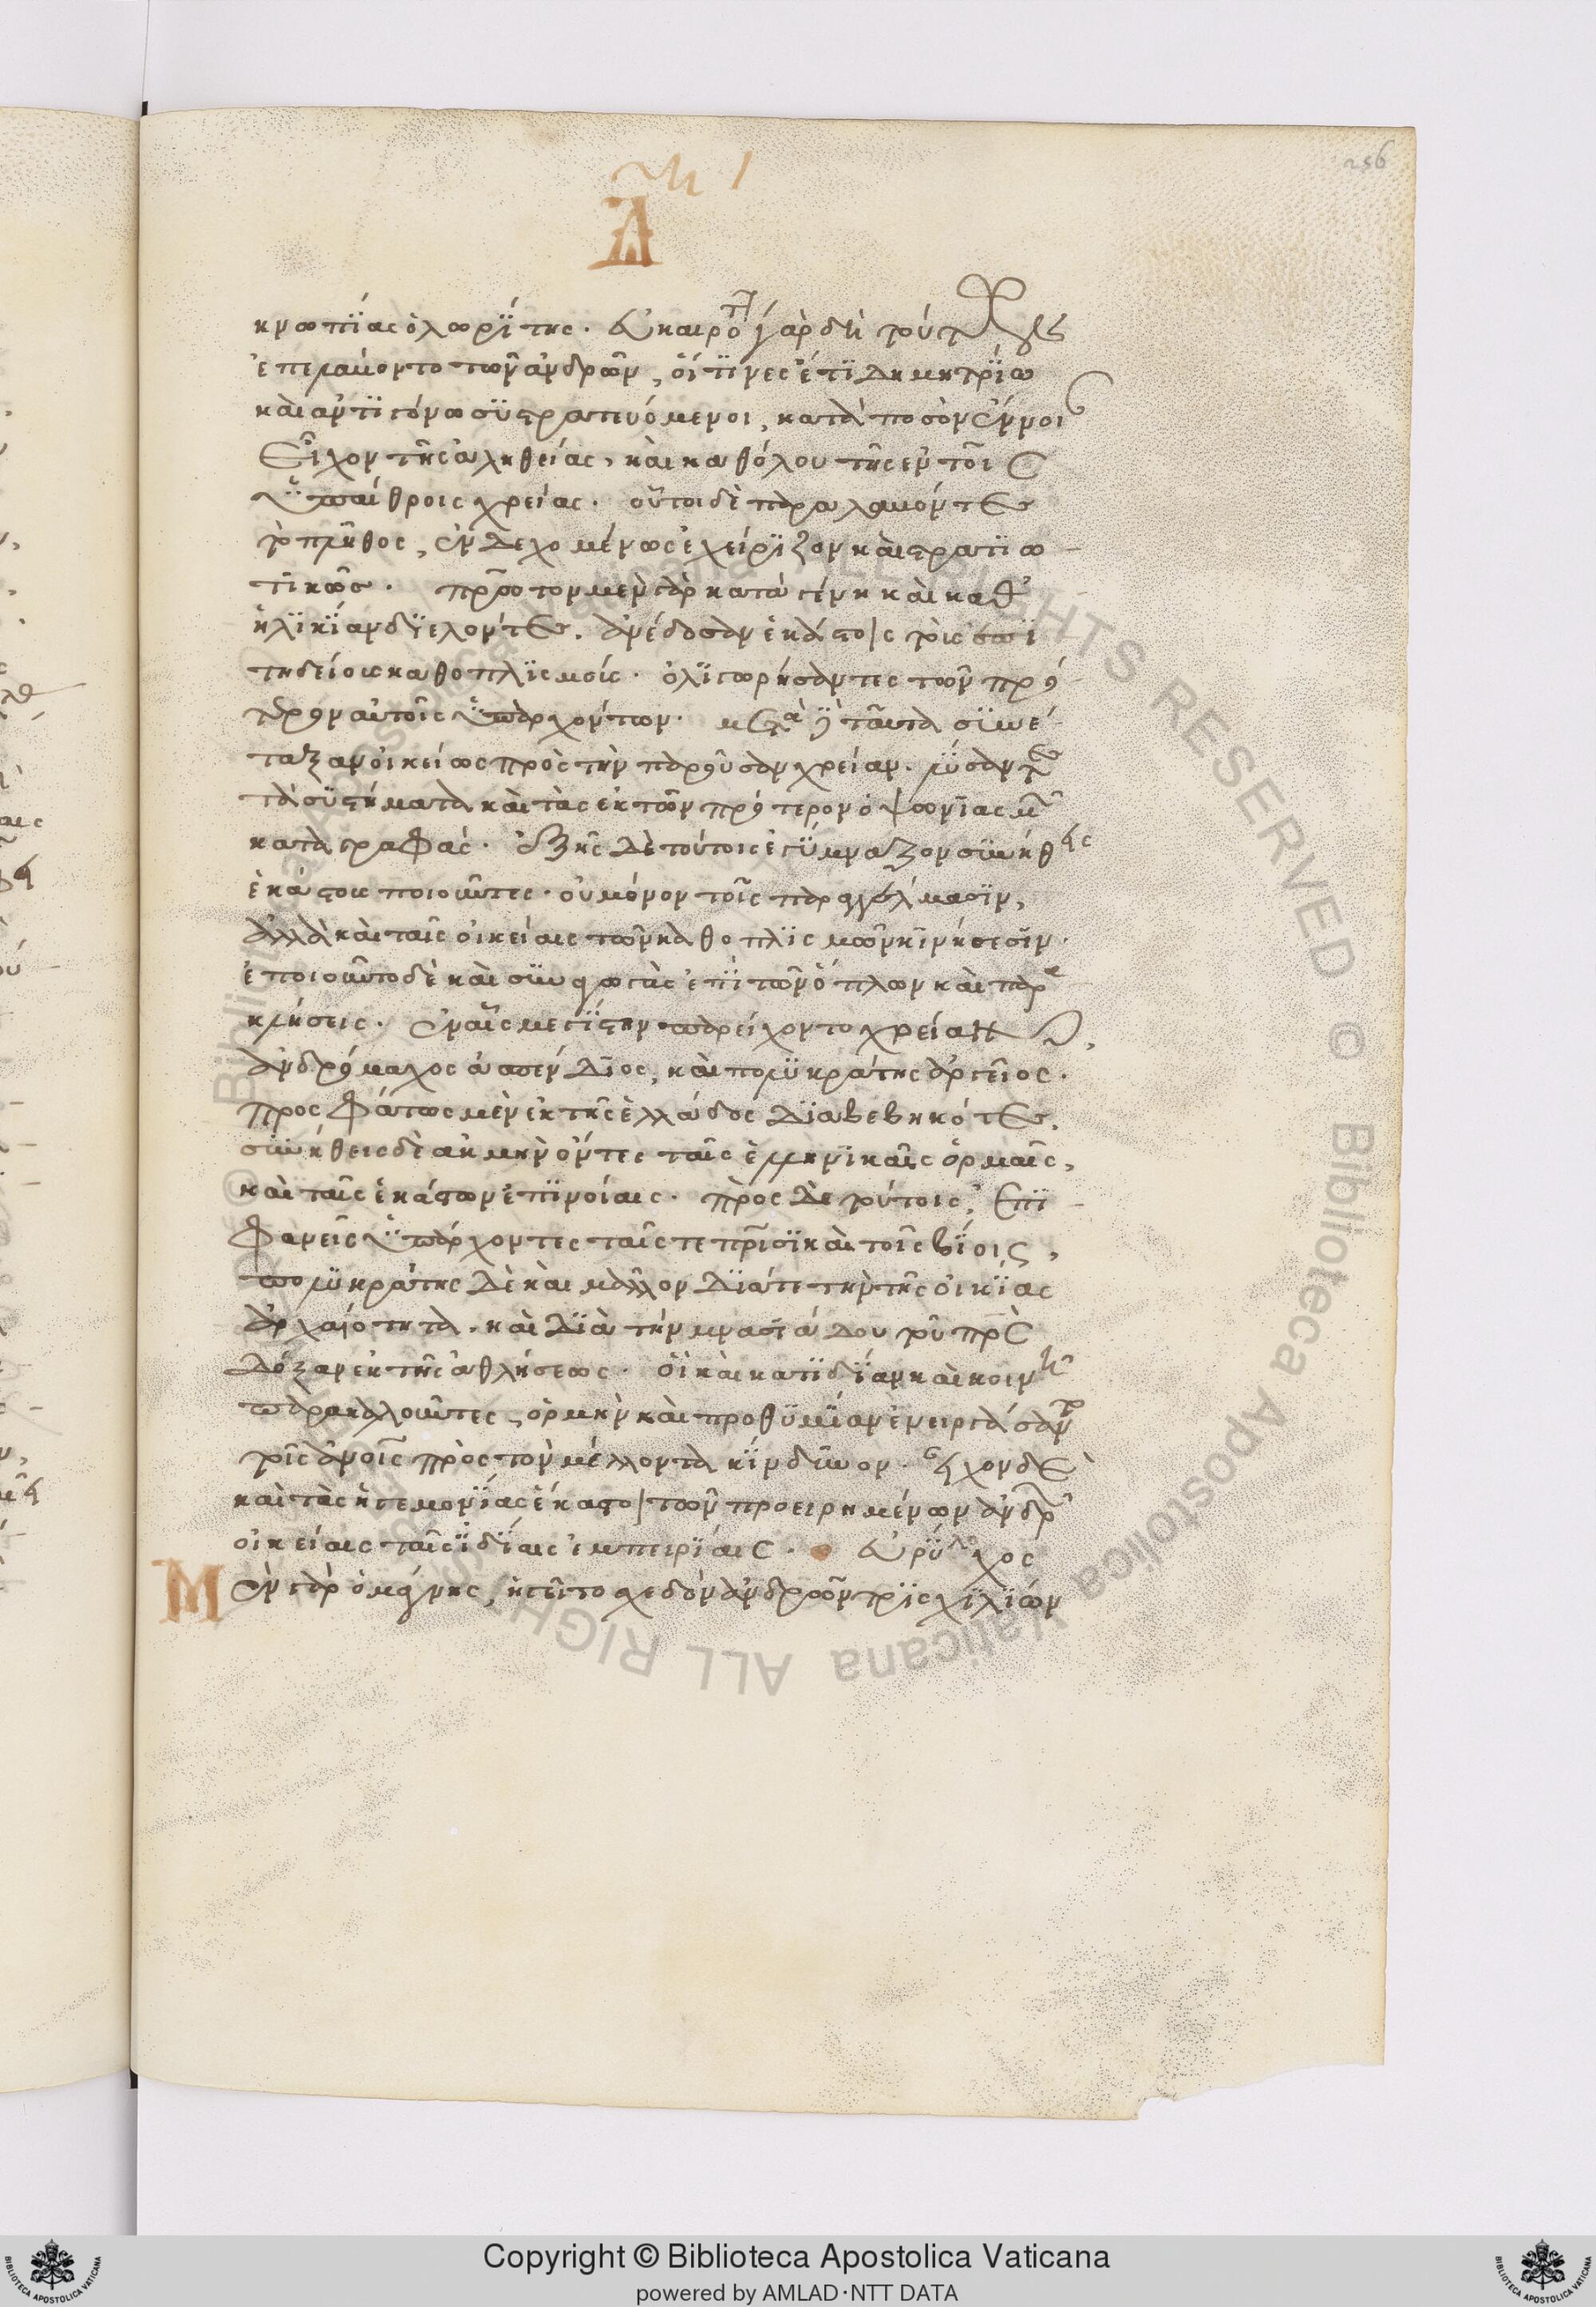 256
Α
κνωπίας ὁλωρίτης. εὐκαιρότατα γὰρ δὴ τούτους
ἐπελάμοντο τῶν ἀνδρῶν, οἵτινες ἔτι Δημητρίω
καὶ ἀντιγόνω συστρατευόμενοι, κατὰ ποσὸν ἔννοιαν
εἶχον τῆς ἀληθείας, καὶ καθόλου τῆς ἐν τοῖς
ὑπαίθροις χρείας. οὗτοι δὲ παραλαμόντες
τὸ πλῆθος, ἐνδεχομένως ἐχείριζον καὶ στρατιω-
τικῶς. πρῶτον μὲν γὰρ κατὰ γένη καὶ καθ'
ἡλικίαν διελόντες. ἀνέδοσαν ἑκάστοις τοῖς ἐπι
τηδείοις καθοπλισμοῖς. ὀλιγωρήσαντες τῶν πρό
τερον αὐτοῖς ὑπαρχόντων. μετὰ δὲ ταῦτα συνέ-
ταξαν οἰκείως πρὸς τὴν παροῦσαν χρείαν. λύσαντες
τὰ συστήματα καὶ τὰς ἐκ τῶν πρότερον ὀψωνίας
καταγραφάς. ἑξῆς δὲ τούτοις ἐγύμναζον συνήθεις
ἑκάστοις ποιοῦντες. οὐ μόνον τοῖς παραγγέλμασιν,
ἀλλὰ καὶ ταῖς οἰκείαις τῶν καθοπλισμῶν κινήσεσιν.
ἐποιοῦντο δὲ καὶ συναγωγὰς ἐπὶ τῶν ὅπλων καὶ παρα
κλήσεις. ἐν αἷς μεγίστην παρείχοντο χρείαν,
ἀνδρόμαχος ἀασπένδιος, καὶ πολυκράτης ἀργεῖος.
προσφάτως μὲν ἐκ τῆς ἑλλάδος διαβεβηκότες.
συνήθεις δὲ ἀκμὴν ὄντες ταῖς ἑλληνικαῖς ὁρμαῖς,
καὶ ταῖς ἑκάστων ἐπινοίαις. πρὸς δὲ τούτοις, ἐπι-
φανεῖς ὑπάρχοντες ταῖς τε πρισὶ καὶ τοῖς βίοις,
πολυκράτης δὲ καὶ μᾶλλον διά τε τὴν τῆς οἰκίας
ἀρχαιότητα. καὶ διὰ τὴν μνασιάδου τοῦ πρς
δόξαν ἐκ τῆς ἀθλήσεως. οἳ καὶ κατιδίαν καὶ κοινῆ
παρακαλοῦντες, ὁρμὴν καὶ προθυμίαν ἐνειργάσαντο
τοῖς ἀνοις πρὸς τὸν μέλλοντα κίνδυνον. εἶχον δὲ
καὶ τὰς ἡγεμονίας ἕκαστοι τῶν προειρημένων ἀνδρῶν
οἰκείαις ταῖς ἰδίαις ἐμπειρίαις. εὐρύλοχος
Μ ὲν γὰρ ὁ μάγνης, ἡγεῖτο σχεδὸν ἀνδρῶν τρισχιλίων
© Biblioteca Apostolica Vaticana ALL RIGHTS RESERVED © Biblioteca Apostolica Vaticana ALL RIGHTS RESERVED
Copyright © Biblioteca Apostolica Vaticana
powered by AMLAD·NTT DATA